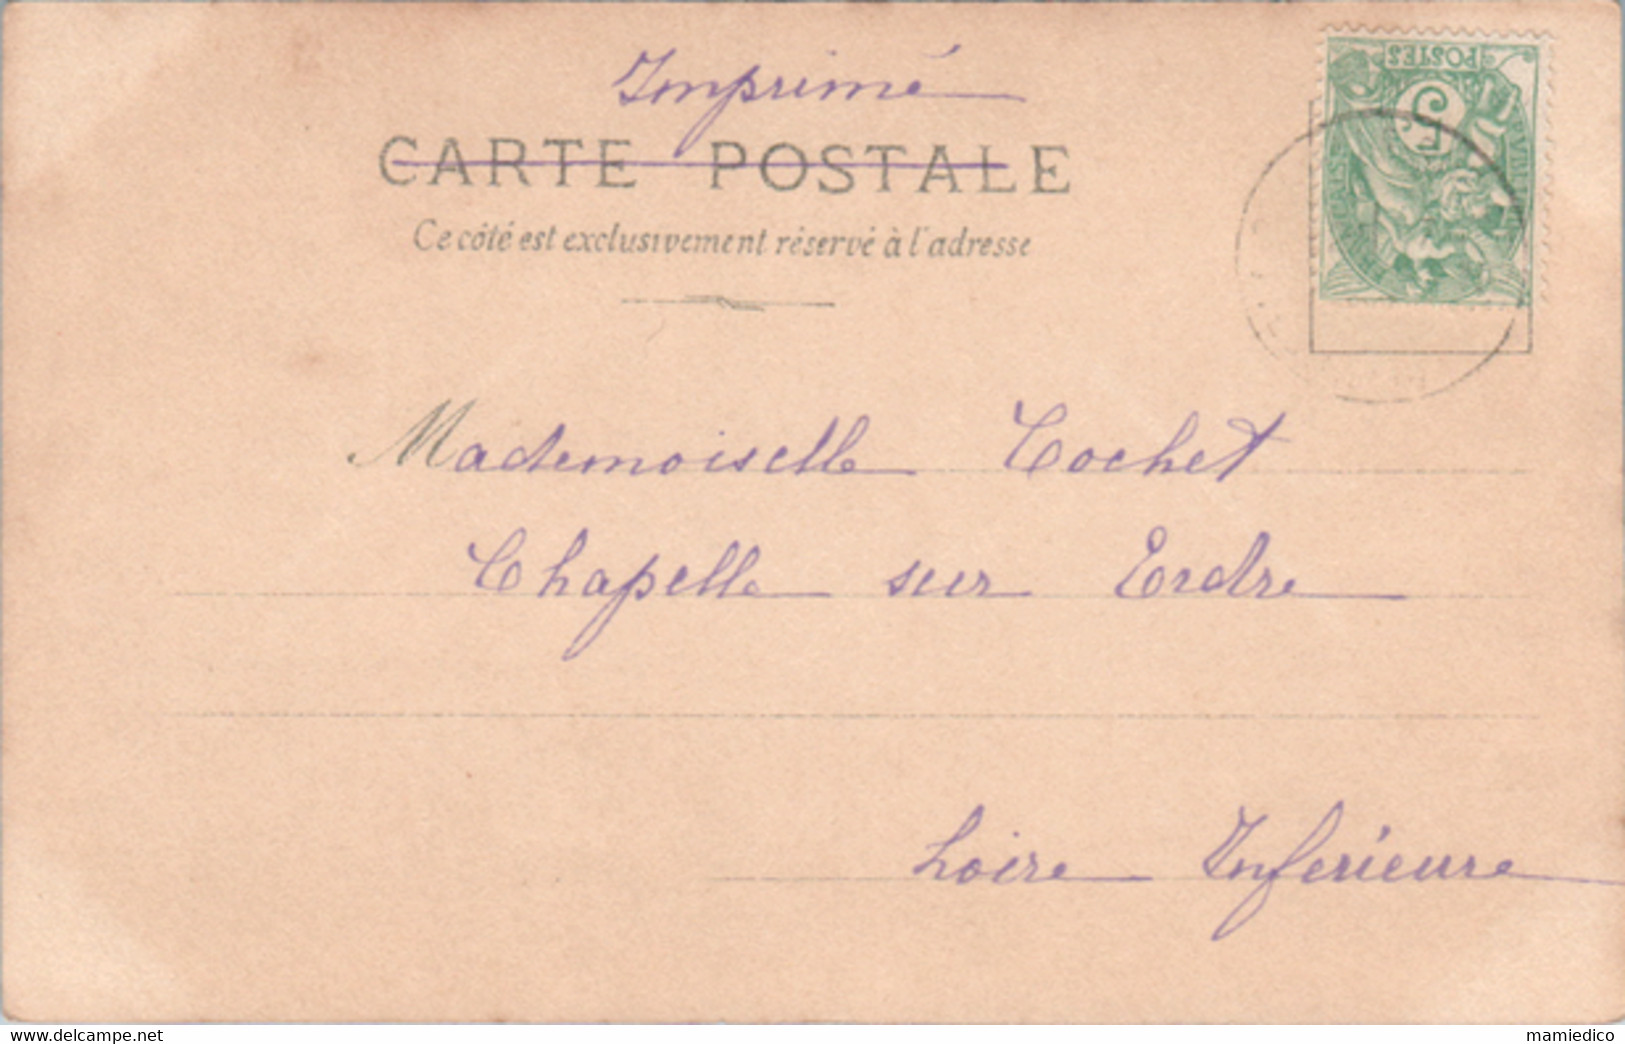 Imprimé
CARTE POSTALE
Ce côté est exclusivement réservé à l'adresse
POSTES
5
Mademoiselle Cochet
Chapelle sur Erdre
Loire Inférieure
https://www.delcampe.net
mamiedico